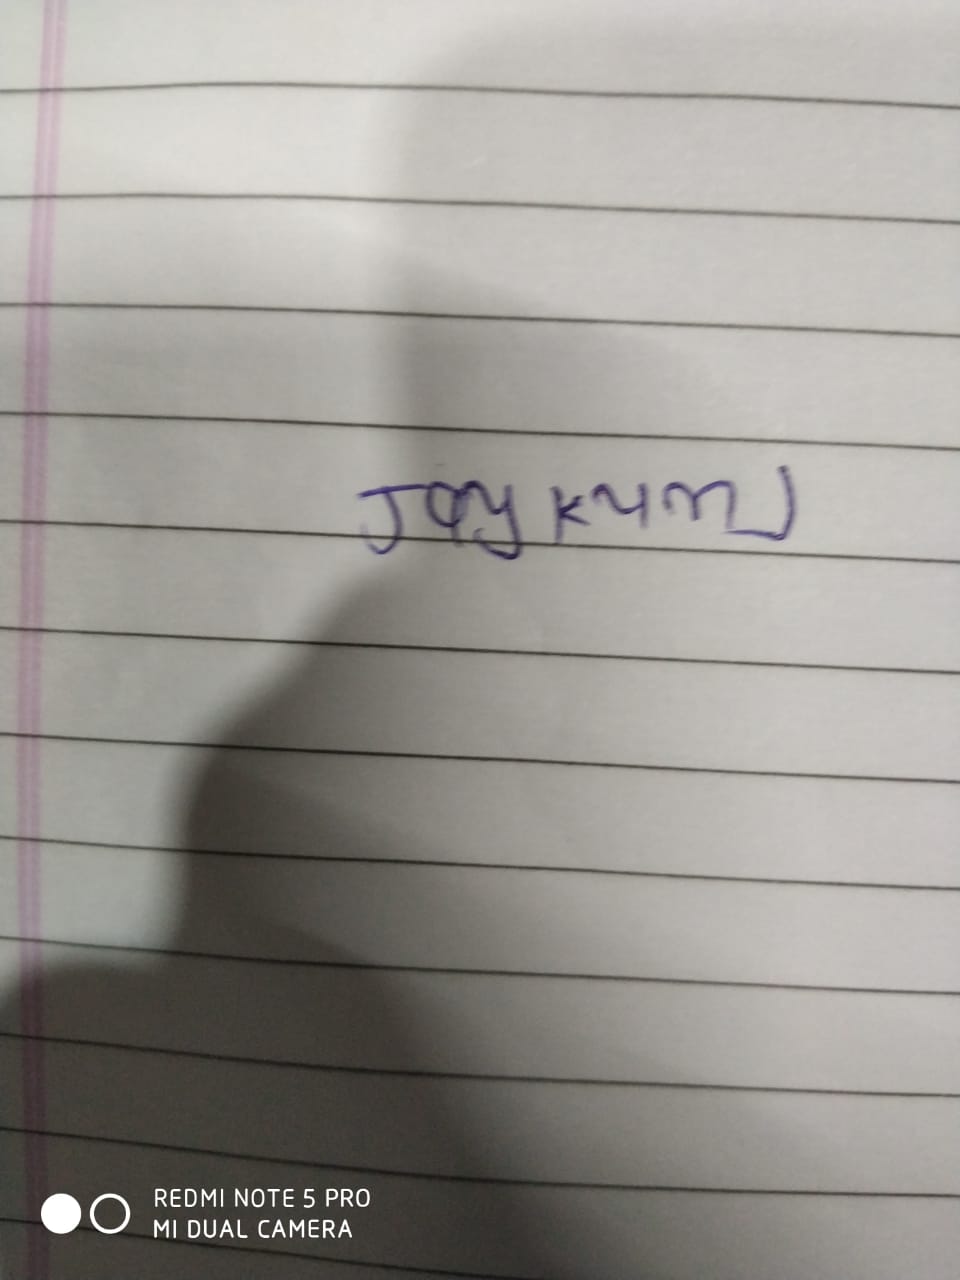 Jay
REDMI NOTE 5 PRO
MI DUAL CAMERA